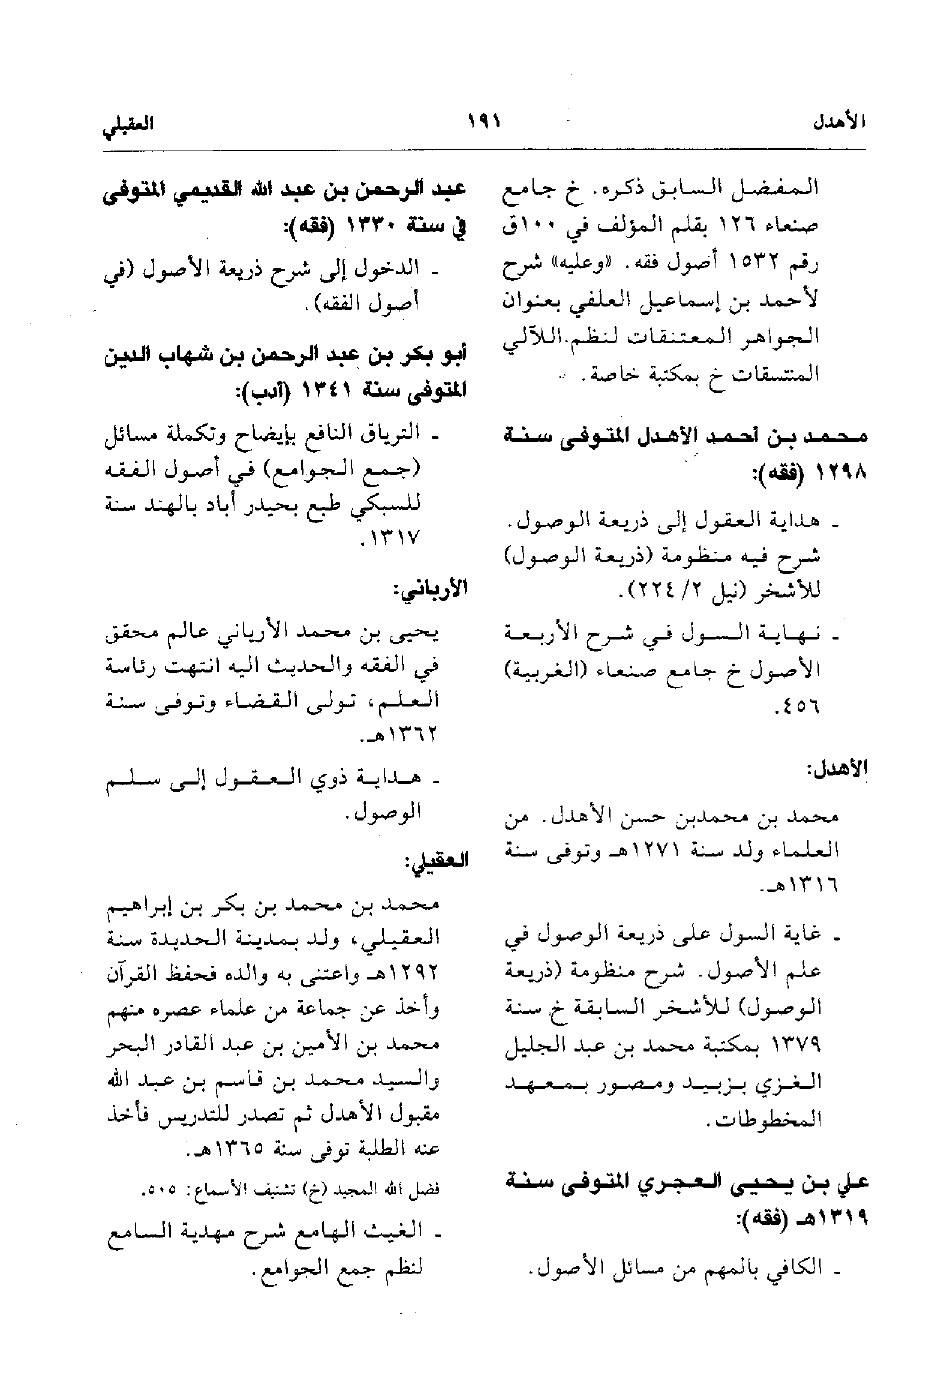 الأهدل ١٩١ العقيلي
المفضل السابق ذكره. خ جامع
صنعاء ١٢٦ بقلم المؤلف في ١٠٠ق
رقم ١٥٣٢ أصول فقه. «وعليه» شرح
لأحمد بن إسماعيل العلفي بعنوان
الجواهر المعتنقات لنظم اللآلي
المنتسقات خ بمكتبة خاصة.
محمد بن أحمد الأهدل المتوفى سنة
١٢٩٨ (فقه):
ـ هداية العقول إلى ذريعة الوصول.
شرح فيه منظومة (ذريعة الوصول)
للأشخر (نيل ٢/ ٢٢٤).
ـ نهاية السول في شرح الأربعة
الأصول خ جامع صنعاء (الغربية)
٤٥٦.
الأهدل:
محمد بن محمدبن حسن الأهدل. من
العلماء ولد سنة ١٢٧١هـ وتوفى سنة
١٣١٦هـ.
ـ غاية السول على ذريعة الوصول في
علم الأصول. شرح منظومة (ذريعة
الوصول) للأشخر السابقة خ سنة
١٣٧٩ بمكتبة محمد بن عبد الجليل
الغزي بزبيد ومصور بمعهد
المخطوطات.
علي بن يحيى العجري المتوفى سنة
١٣١٩هـ (فقه):
ـ الكافي بالمهم من مسائل الأصول.
عبد الرحمن بن عبد الله القديمي المتوفى
في سنة ١٣٣٠ (فقه):
ـ الدخول إلى شرح ذريعة الأصول (في
أصول الفقه).
أبو بكر بن عبد الرحمن بن شهاب الدين
المتوفى سنة ١٣٤١ (أدب):
ـ الترياق النافع بإيضاح وتكملة مسائل
(جمع الجوامع) في أصول الفقه
للسبكي طبع بحيدر أباد بالهند سنة
١٣١٧.
الأرياني:
يحيى بن محمد الأرياني عالم محقق
في الفقه والحديث اليه انتهت رئاسة
العلم، تولى القضاء وتوفى سنة
١٣٦٢هـ.
ـ هداية ذوي العقول إلى سلم
الوصول.
العقيلي:
محمد بن محمد بن بكر بن إبراهيم
العقيلي، ولد بمدينة الحديدة سنة
١٢٩٢هـ واعتنى به والده فحفظ القرآن
وأخذ عن جماعة من علماء عصره منهم
محمد بن الأمين بن عبد القادر البحر
والسيد محمد بن قاسم بن عبد الله
مقبول الأهدل ثم تصدر للتدريس فأخذ
عنه الطلبة توفى سنة ١٣٦٥هـ.
فضل الله المجيد (خ) تشنيف الأسماع: ٥٠٥.
ـ الغيث الهامع شرح مهدية السامع
لنظم جمع الجوامع.